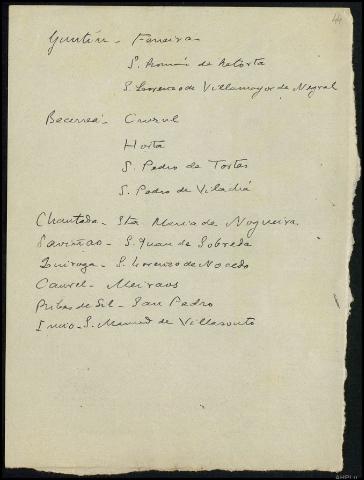 44
Guntín - Ferreira -
S. Román de Retorta
S. Lorenzo de Villamayor de Negral
Becerreá - Cruzul
Horta
S. Pedro de Tortes
S. Pedro de Vilachá
Chantada - Sta María de Nogueira.
Saviñao - S. Juan de Sobreda
Quiroga - S. Lorenzo de Nocedo
Caurel - Meiraos
Ribas de Sil - San Pedro
Incio - S. Mamed de Villasouto
AHPLU